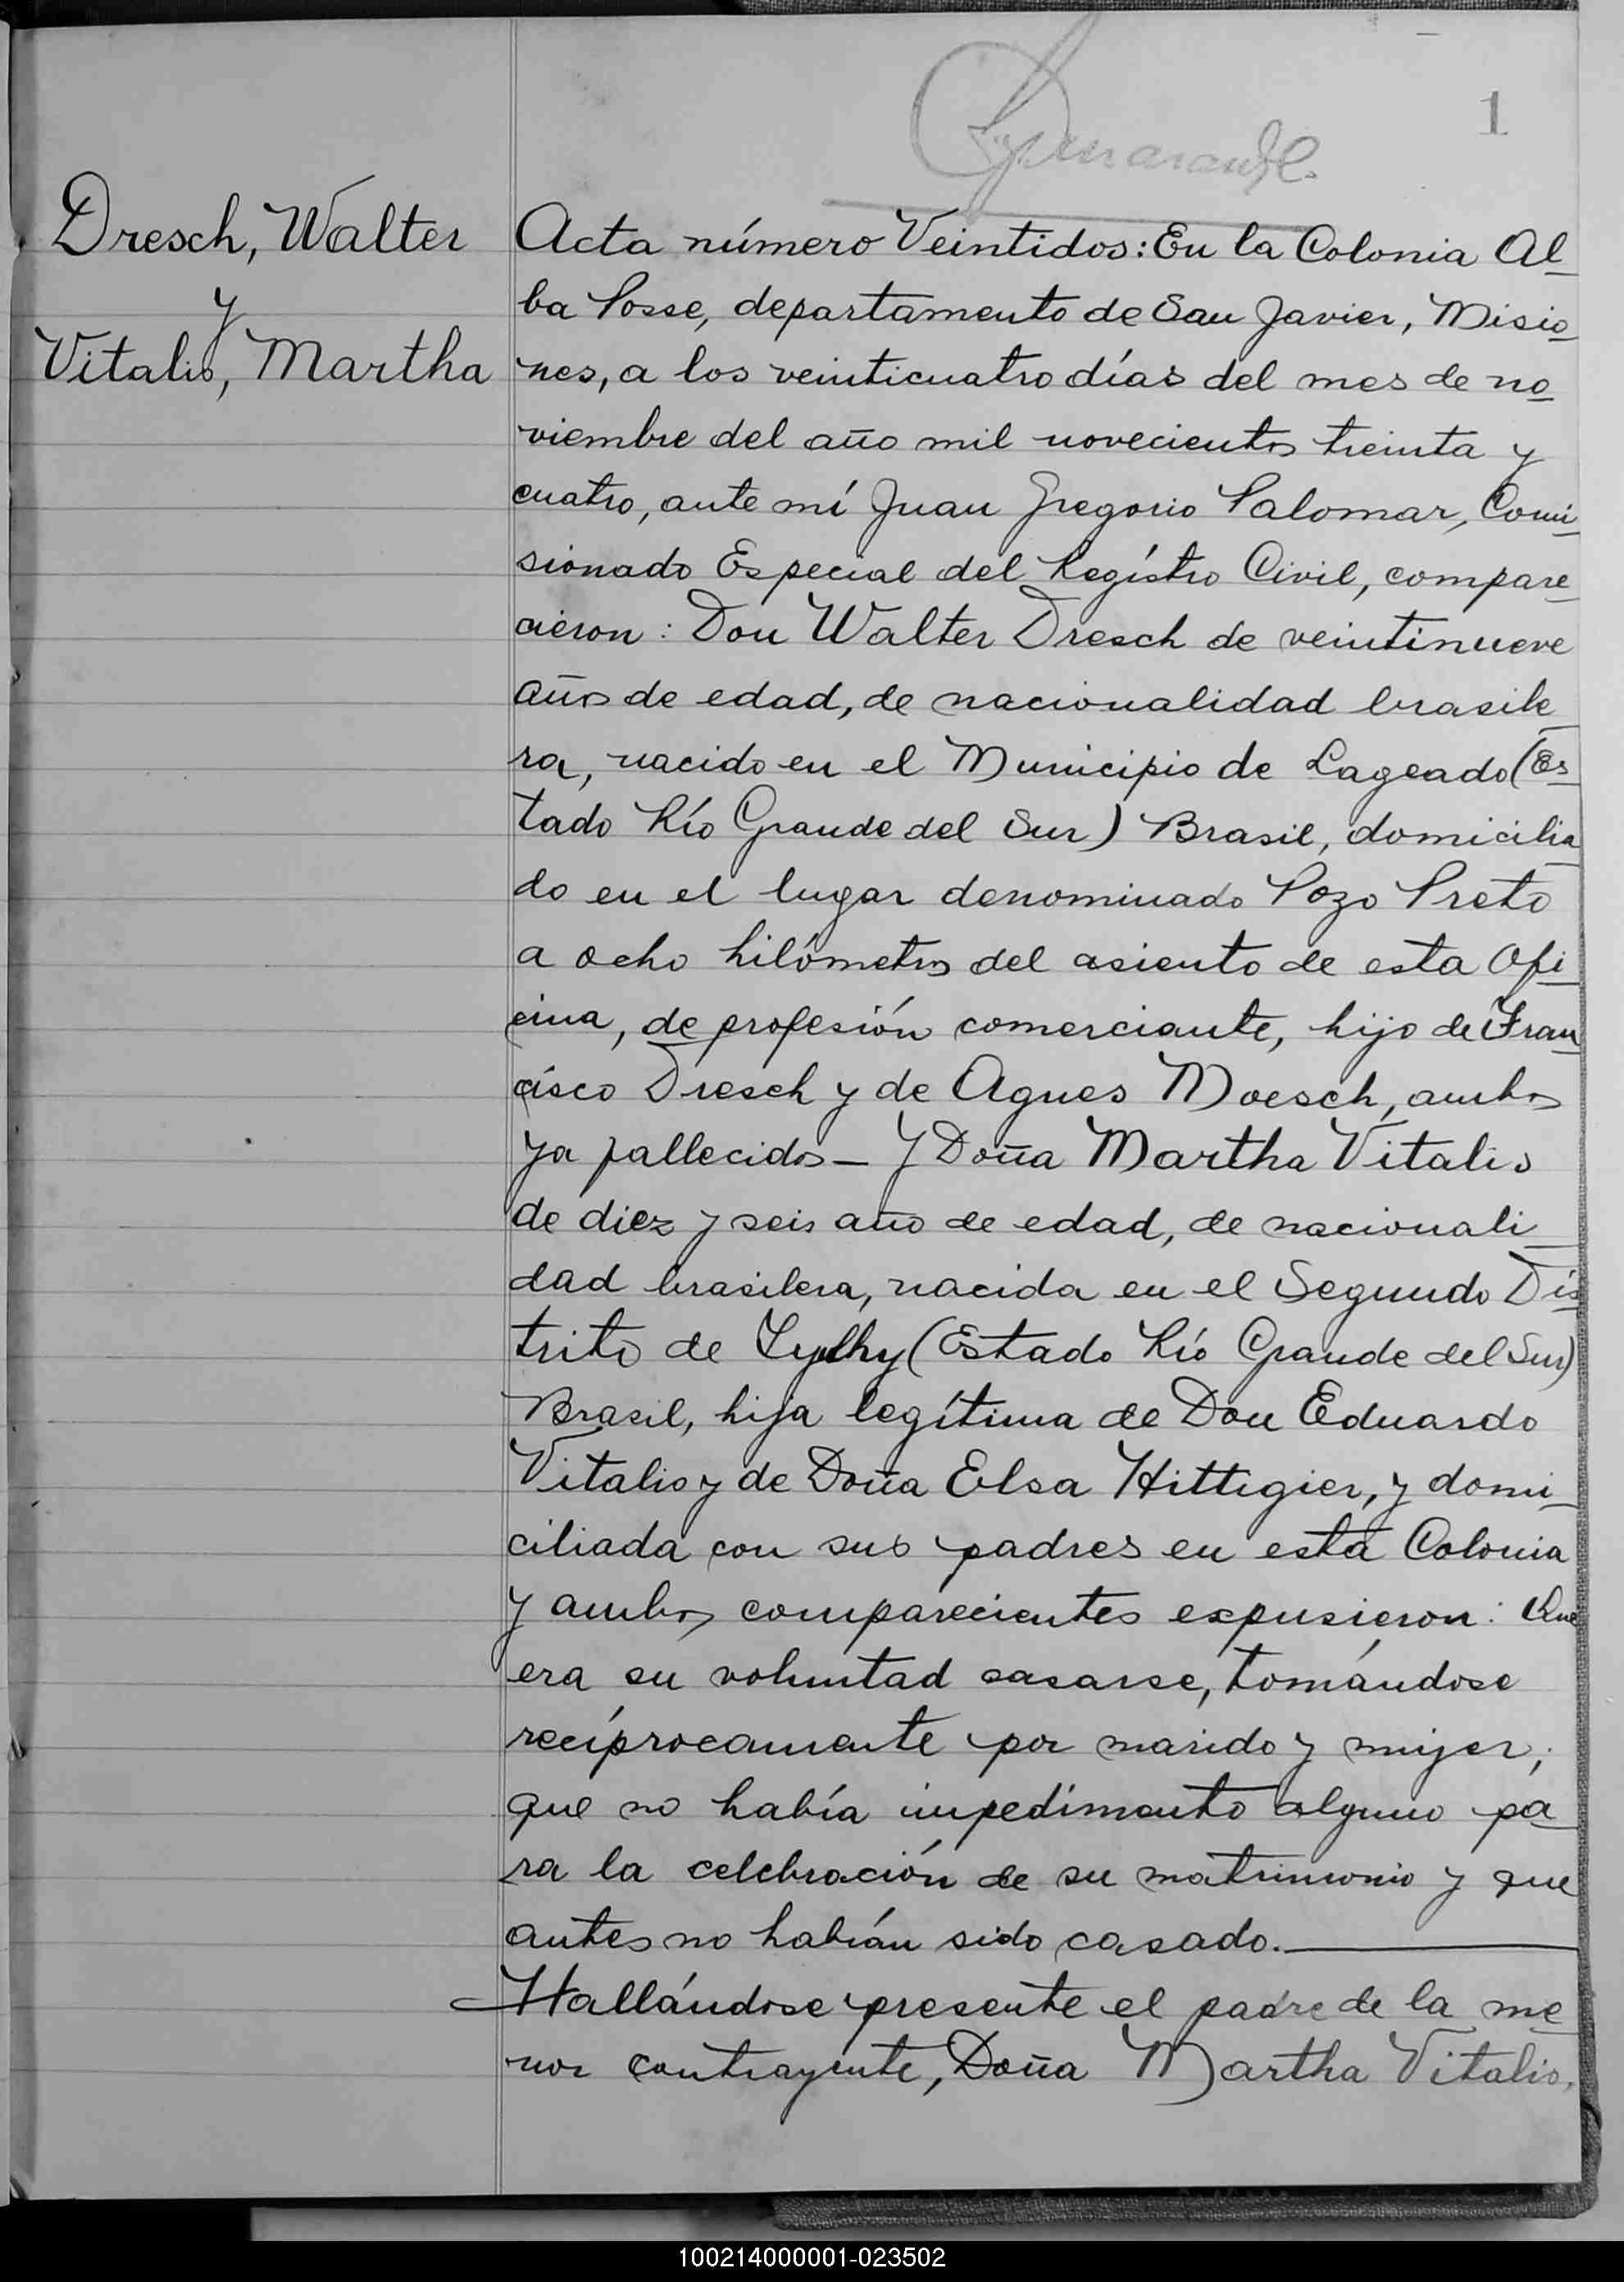 1
Dresch, Walter
y
Vitalis, Martha
Acta número Veintidos: En la Colonia Al
ba Posse, departamento de San Javier, Misio
nes, a los veinticuatro días del mes de no
viembre del año mil novecientos treinta y
cuatro, ante mí Juan Gregorio Palomar, Comi
sionado Especial del Regístro Civil, compare
cieron: Don Walter Dresch de veintinueve
años de edad, de nacionalidad brasile
ra, nacido en el Municipio de Lageado (Es
tado Río Grande del Sur) Brasil, domicilia
do en el lugar denominado Pozo Preto
a ocho kilómetros del asiento de esta Ofi
cina, de profesión comerciante, hijo de Fran
cisco Dresch y de Agnes Moesch, ambos
ya fallecidos — Y Doña Martha Vitalis
de diez y seis año de edad, de nacionali
dad brasilera, nacida en el Segundo Dis
trito de (Estado Río Grande del Sur)
Brasil, hija legítima de Don Eduardo
Vitalis y de Doña Elsa Hittigier, y domi
ciliada con sus padres en esta Colonia
y ambos comparecientes expusieron: Que
era su voluntad casarse, tomándose
recíprocamente por marido y mujer;
que no había impedimento alguno pa
ra la celebración de su matrimonio y que
antes no habían sido casado.
Hallándose presente el padre de la me
nor contrayente, Doña Martha Vitalis,
100214000001-023502